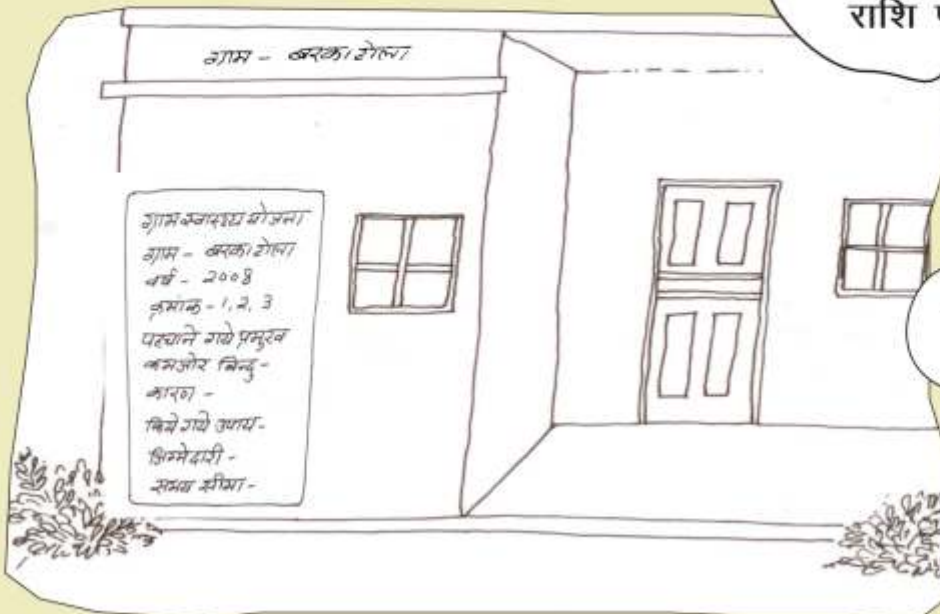 राशि
ग्राम - बरकाटोला
ग्राम स्वास्थ्य योजना
ग्राम - बरकाटोला
वर्ष - २००8
क्रमांक - 1, 2, 3
पहचाने गये प्रमुख
कमजोर बिन्दु -
कारण -
किये गये उपाय -
जिम्मेदारी -
समय सीमा -